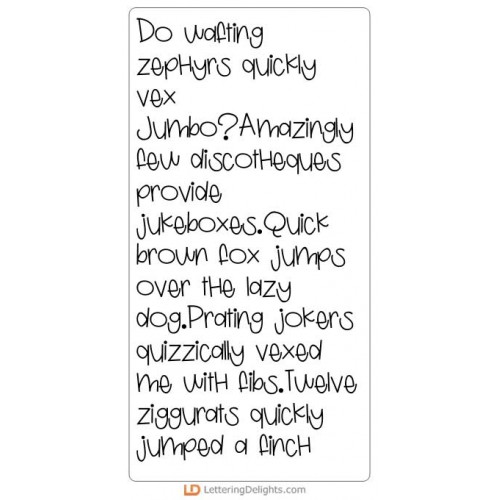 Do wafting
zephyrs quickly
vex
Jumbo?Amazingly
few discotheques
provide
jukeboxes.Quick
brown fox jumps
over the lazy
dog.Prating jokers
quizzically vexed
me with fibs.Twelve
ziggurats quickly
jumped a finch
LD LetteringDelights.com